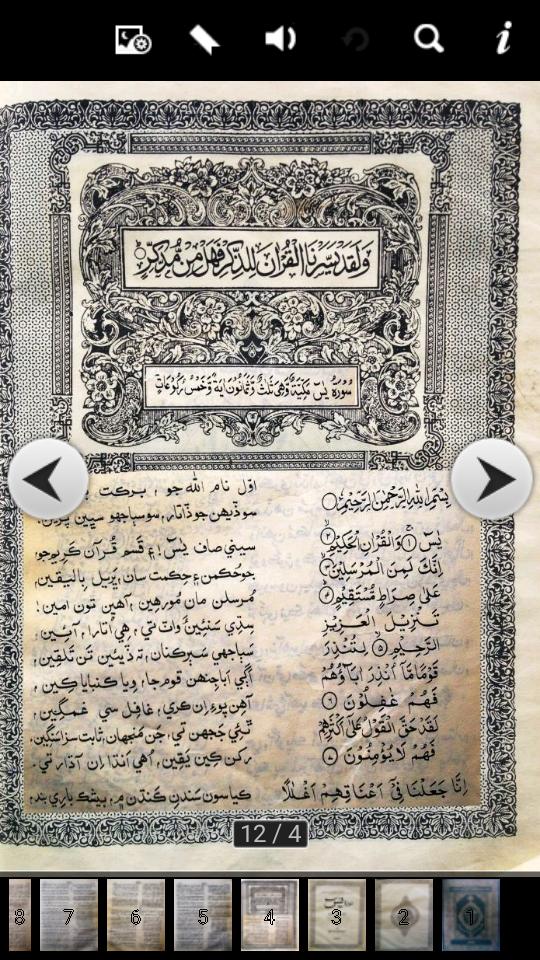 وَلَقَدْ يَسَّرْنَا الْقُرْاٰنَ لِلذِّكْرِ فَهَلْ مِنْ مُّدَّكِرٍ
سُوْرَةُ يٰسٓ مَكِّيَّةٌ وَّهِيَ ثَلٰثٌ وَّثَمَانُوْنَ اٰيَةً وَّخَمْسُ رُكُوْعَاتٍ
بِسْمِ اللهِ الرَّحْمٰنِ الرَّحِيْمِ
يٰسٓ ۱ وَالْقُرْاٰنِ الْحَكِيْمِ ۲
اِنَّكَ لَمِنَ الْمُرْسَلِيْنَ ۳
عَلٰى صِرَاطٍ مُّسْتَقِيْمٍ ۴
تَنْزِيْلَ الْعَزِيْزِ
الرَّحِيْمِ ۵ لِتُنْذِرَ
قَوْمًا مَّآ اُنْذِرَ اٰبَآؤُهُمْ
فَهُمْ غٰفِلُوْنَ ۶
لَقَدْ حَقَّ الْقَوْلُ عَلٰٓى اَكْثَرِهِمْ
فَهُمْ لَا يُؤْمِنُوْنَ ۷
اِنَّا جَعَلْنَا فِيْٓ اَعْنَاقِهِمْ اَغْلٰلًا
اوّل نام الله جو، برڪت
سو ڏيهن جو ڏاتار، سو سٻاجهو سڀين
سيني صاف يٰسٓ! ۽ قسم قرآن ڪريم جو،
جو حڪمن ۽ حڪمت سان، ڀريل باليقين،
مرسلن مان مور هين، آهين تون امين!
سڌي سنئين واٽ تي، هي اُتارا، آئين،
سٻاجهي ته ڏيئين تن تلقين،
اڳي ابا جنهن قوم جا، ويا ڪنبايا ڪين،
آهن پوءِ ان ڪري، غافل سي غمگين،
تي، جن منجهان، ثابت سزا سنگين،
رکن ڪين يقين، اُهي انڌا ان آڌار تي.
ڪياسون سندن ڪنڌن ۾، بيشڪ باري بند،
12 / 4
8 7 6 5 4 3 2 1